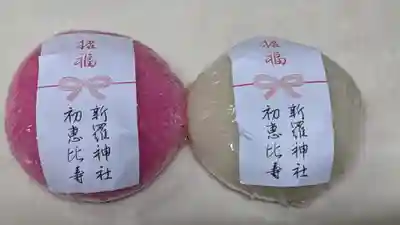 招福
新羅神社
初恵比寿
招福
新羅神社
初恵比寿